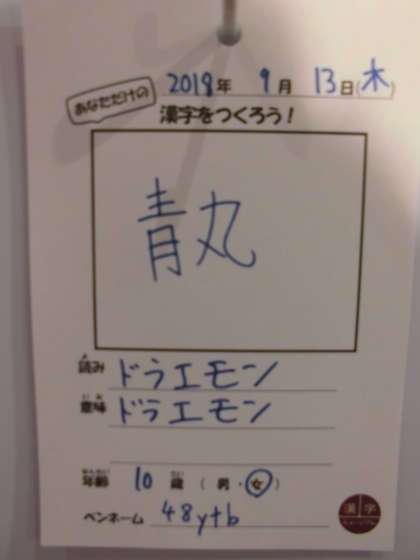 2018年 9月 13日(木)
あなただけの
漢字をつくろう!
青丸
読み ドラエモン
意味 ドラエモン
年齢 10歳 (男・女)
ペンネーム 48ytb
漢字